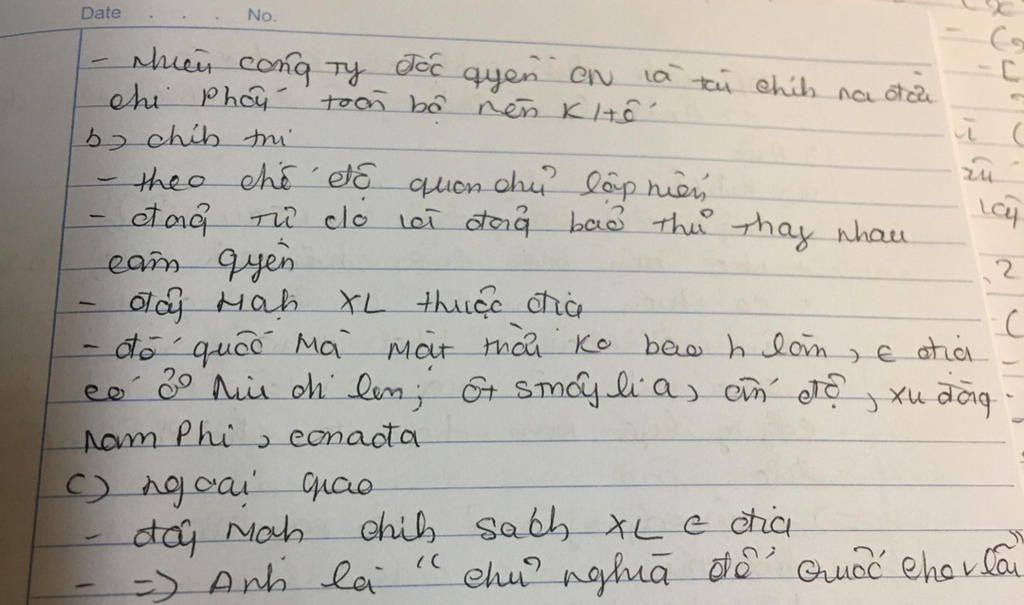 Date . . . No.
- Nhiều công ty độc quyền CN và tài chính ra đời
chi phối toàn bộ nền KItế
b, chính trị
- theo chế độ quân chủ lập hiến
- đảng tự do và đảng bảo thủ thay nhau
cầm quyền
- đẩy mạnh XL thuộc địa
- đế quốc mà mặt trời ko bao h lặn, € địa
có ở Niu di len; ôt s mấy li a, ấn độ, xu đăng
Nam Phi, canada
c) ngoại giao
- đẩy mạnh chính sách XL € địa
- => Anh là " chủ nghĩa đế quốc